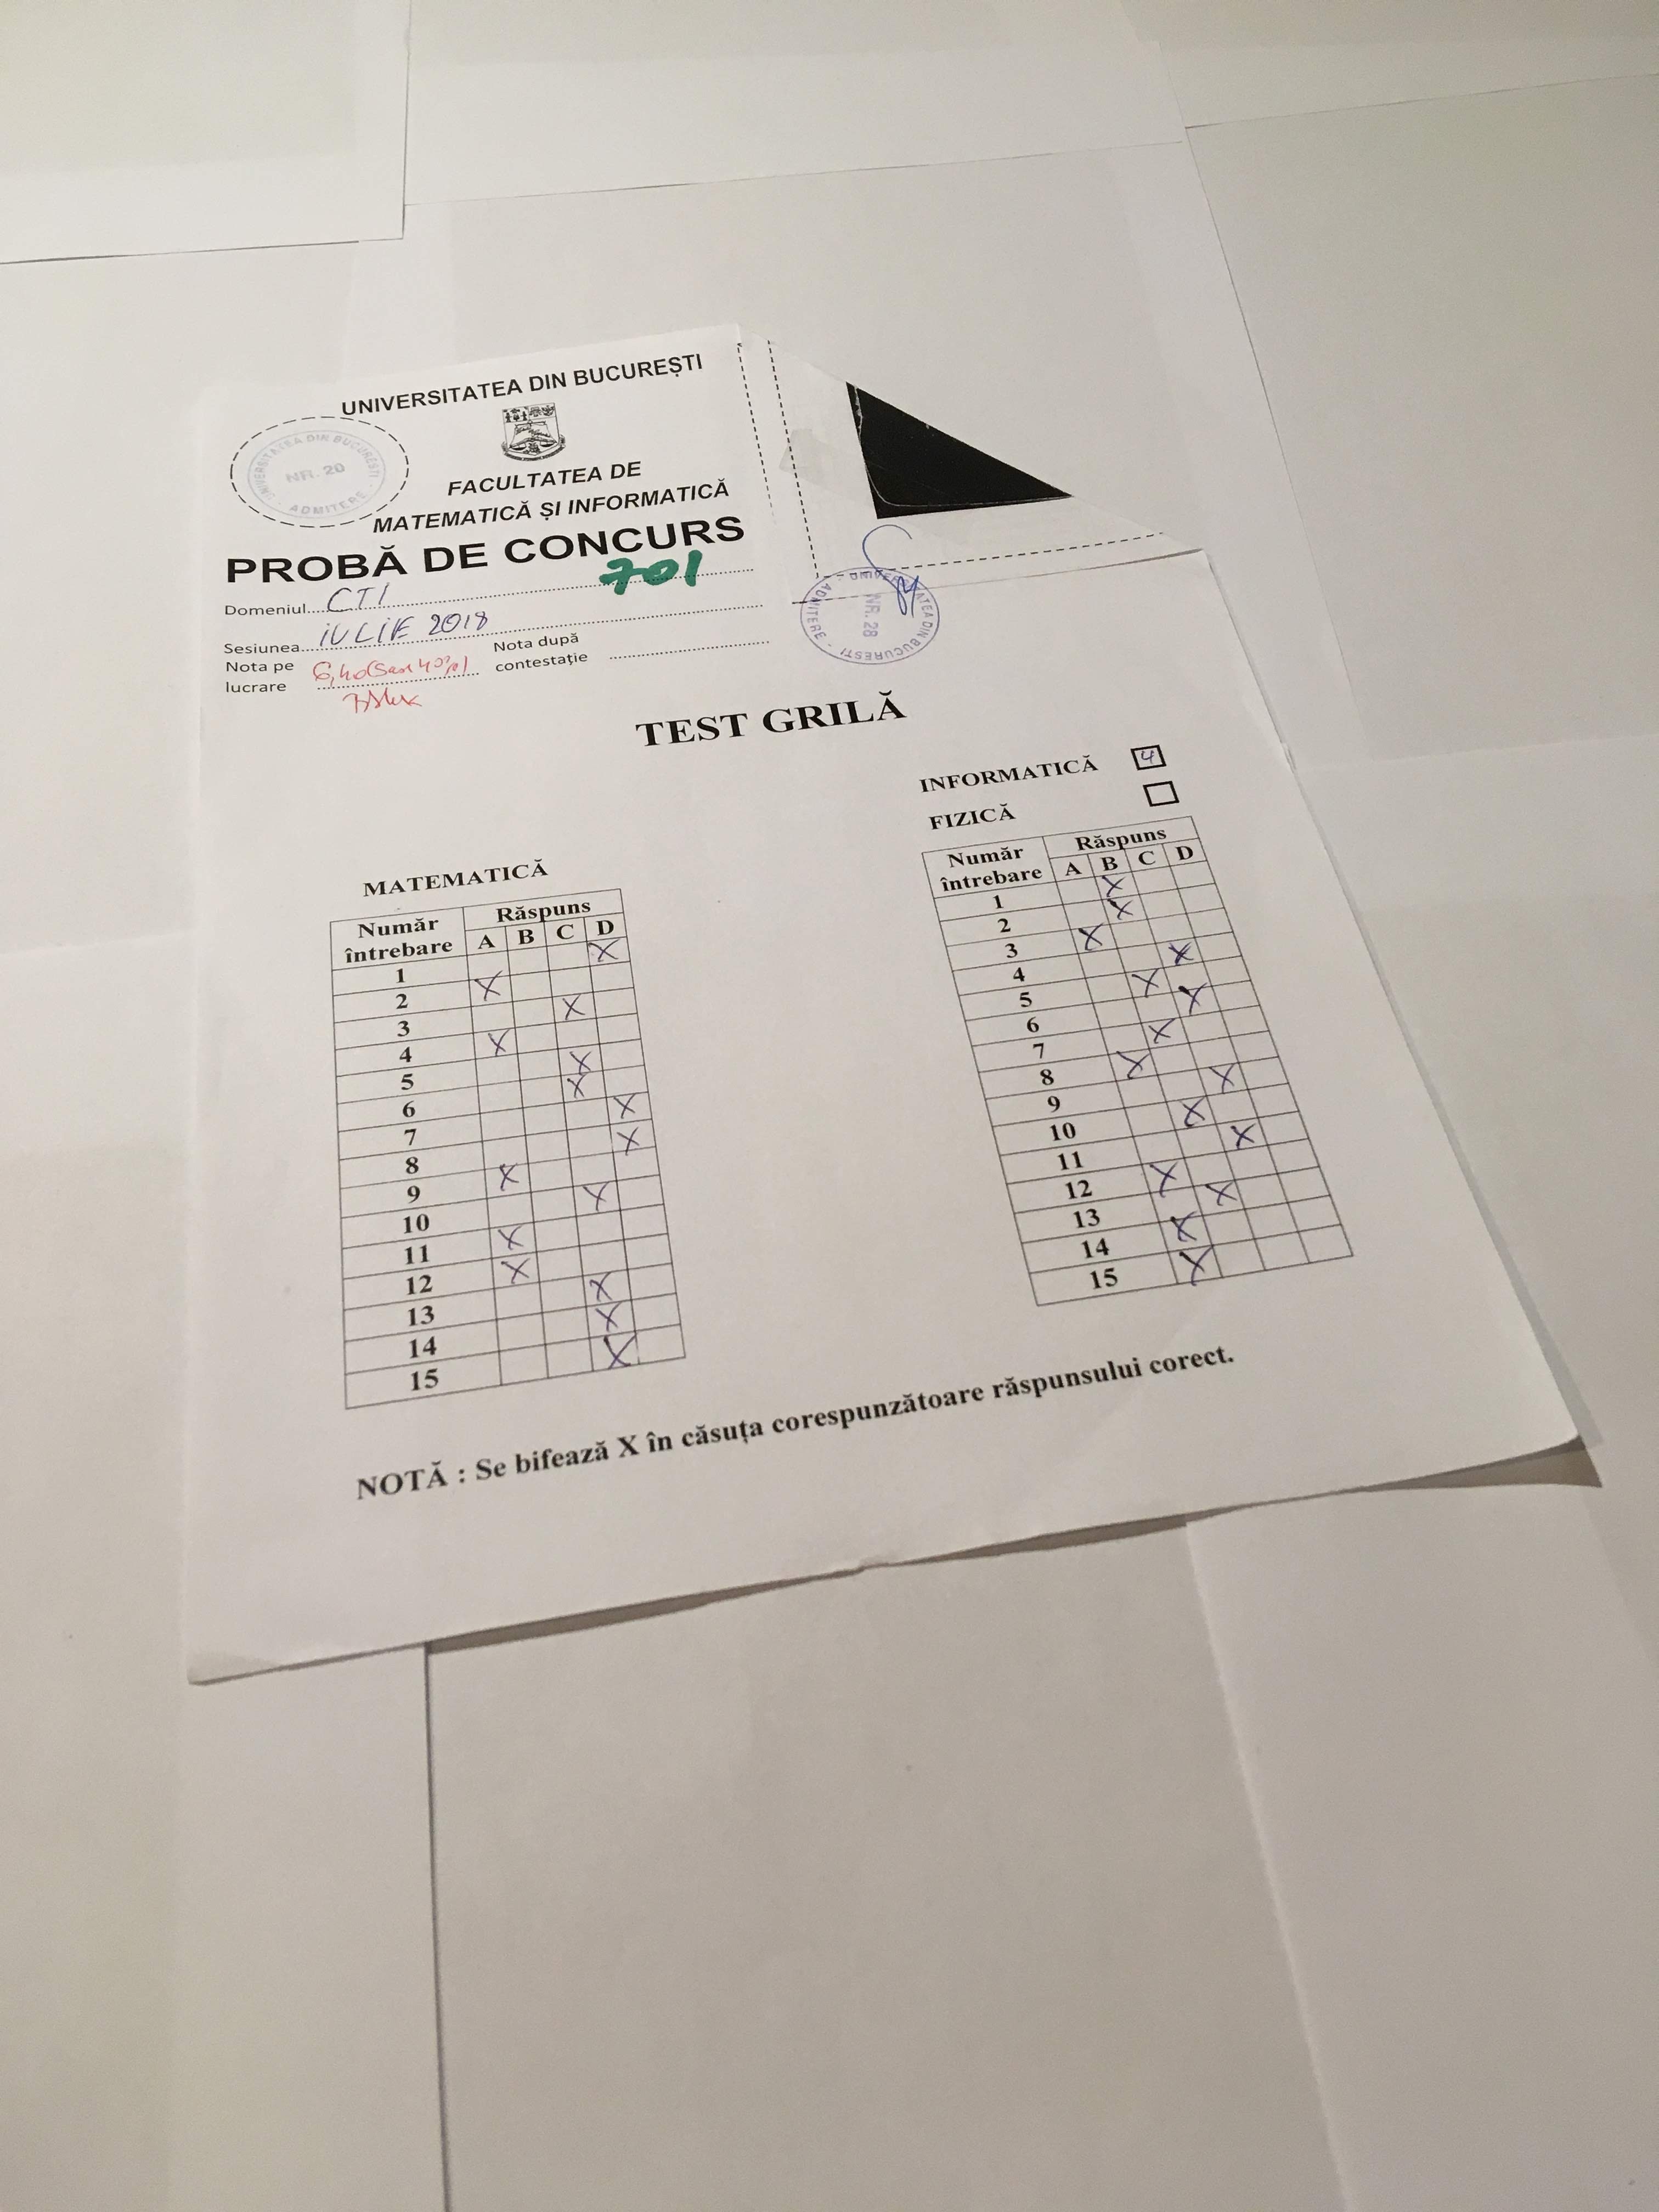 UNIVERSITATEA DIN BUCUREȘTI
UNIVERSITATEA DIN BUCUREȘTI
NR. 20
ADMITERE
FACULTATEA DE
MATEMATICĂ ȘI INFORMATICĂ
PROBĂ DE CONCURS
701
Domeniul CTI
Sesiunea IULIE 2018
Nota pe lucrare 6,40
Nota după contestație
UNIVERSITATEA DIN BUCURESTI
NR. 28
ADMITERE
TEST GRILĂ
MATEMATICĂ
Număr întrebare Răspuns
A B C D
1 X
2 X
3 X
4 X
5 X
6 X
7 X
8 X
9 X
10 X
11 X
12 X
13 X
14 X
15 X
INFORMATICĂ 4
FIZICĂ
Număr întrebare Răspuns
A B C D
1 X
2 X
3 X
4 X
5 X
6 X
7 X
8 X
9 X
10 X
11 X
12 X
13 X
14 X
15 X
NOTĂ : Se bifează X în căsuța corespunzătoare răspunsului corect.